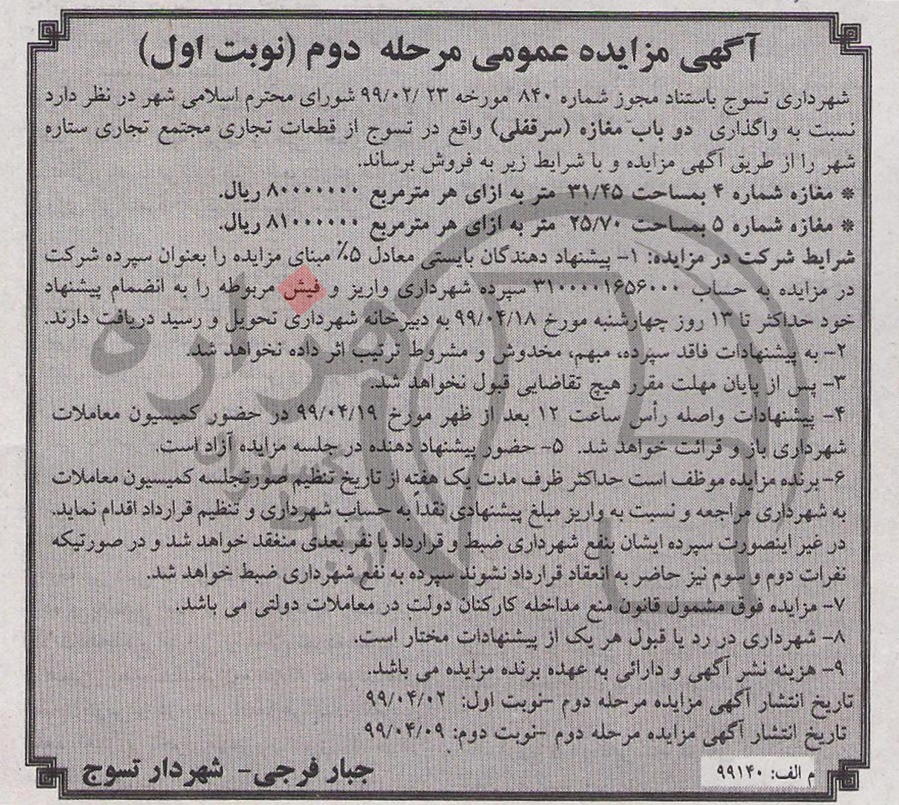 آگهی مزایده عمومی مرحله دوم (نوبت اول)
شهرداری تسوج باستناد مجوز شماره ۸۴۰ مورخه ۹۹/۰۲/۲۳ شورای محترم اسلامی شهر در نظر دارد
نسبت به واگذاری دو باب مغازه (سرقفلی) واقع در تسوج از قطعات تجاری مجتمع تجاری ستاره
شهر را از طریق آگهی مزایده و با شرایط زیر به فروش برساند.
* مغازه شماره ۴ بمساحت ۳۱/۴۵ متر به ازای هر مترمربع ۸۰۰۰۰۰۰۰ ریال.
* مغازه شماره ۵ بمساحت ۲۵/۷۰ متر به ازای هر مترمربع ۸۱۰۰۰۰۰۰ ریال.
شرایط شرکت در مزایده: ۱- پیشنهاد دهندگان بایستی معادل ۵٪ مبنای مزایده را بعنوان سپرده شرکت
در مزایده به حساب ۳۱۰۰۰۰۱۶۵۶۰۰۰ سپرده شهرداری واریز و فیش مربوطه را به انضمام پیشنهاد
خود حداکثر تا ۱۳ روز چهارشنبه مورخ ۹۹/۰۴/۱۸ به دبیرخانه شهرداری تحویل و رسید دریافت دارند.
۲- به پیشنهادات فاقد سپرده، مبهم، مخدوش و مشروط ترتیب اثر داده نخواهد شد.
۳- پس از پایان مهلت مقرر هیچ تقاضایی قبول نخواهد شد.
۴- پیشنهادات واصله رأس ساعت ۱۲ بعد از ظهر مورخ ۹۹/۰۴/۱۹ در حضور کمیسیون معاملات
شهرداری باز و قرائت خواهد شد. ۵- حضور پیشنهاد دهنده در جلسه مزایده آزاد است.
۶- برنده مزایده موظف است حداکثر ظرف مدت یک هفته از تاریخ تنظیم صورتجلسه کمیسیون معاملات
به شهرداری مراجعه و نسبت به واریز مبلغ پیشنهادی نقداً به حساب شهرداری و تنظیم قرارداد اقدام نماید.
در غیر اینصورت سپرده ایشان بنفع شهرداری ضبط و قرارداد با نفر بعدی منعقد خواهد شد و در صورتیکه
نفرات دوم و سوم نیز حاضر به انعقاد قرارداد نشوند سپرده به نفع شهرداری ضبط خواهد شد.
۷- مزایده فوق مشمول قانون منع مداخله کارکنان دولت در معاملات دولتی می باشد.
۸- شهرداری در رد یا قبول هر یک از پیشنهادات مختار است.
۹- هزینه نشر آگهی و دارائی به عهده برنده مزایده می باشد.
تاریخ انتشار آگهی مزایده مرحله دوم -نوبت اول: ۹۹/۰۴/۰۲
تاریخ انتشار آگهی مزایده مرحله دوم -نوبت دوم: ۹۹/۰۴/۰۹
م الف: ۹۹۱۴۰
جبار فرجی- شهردار تسوج
هزاره